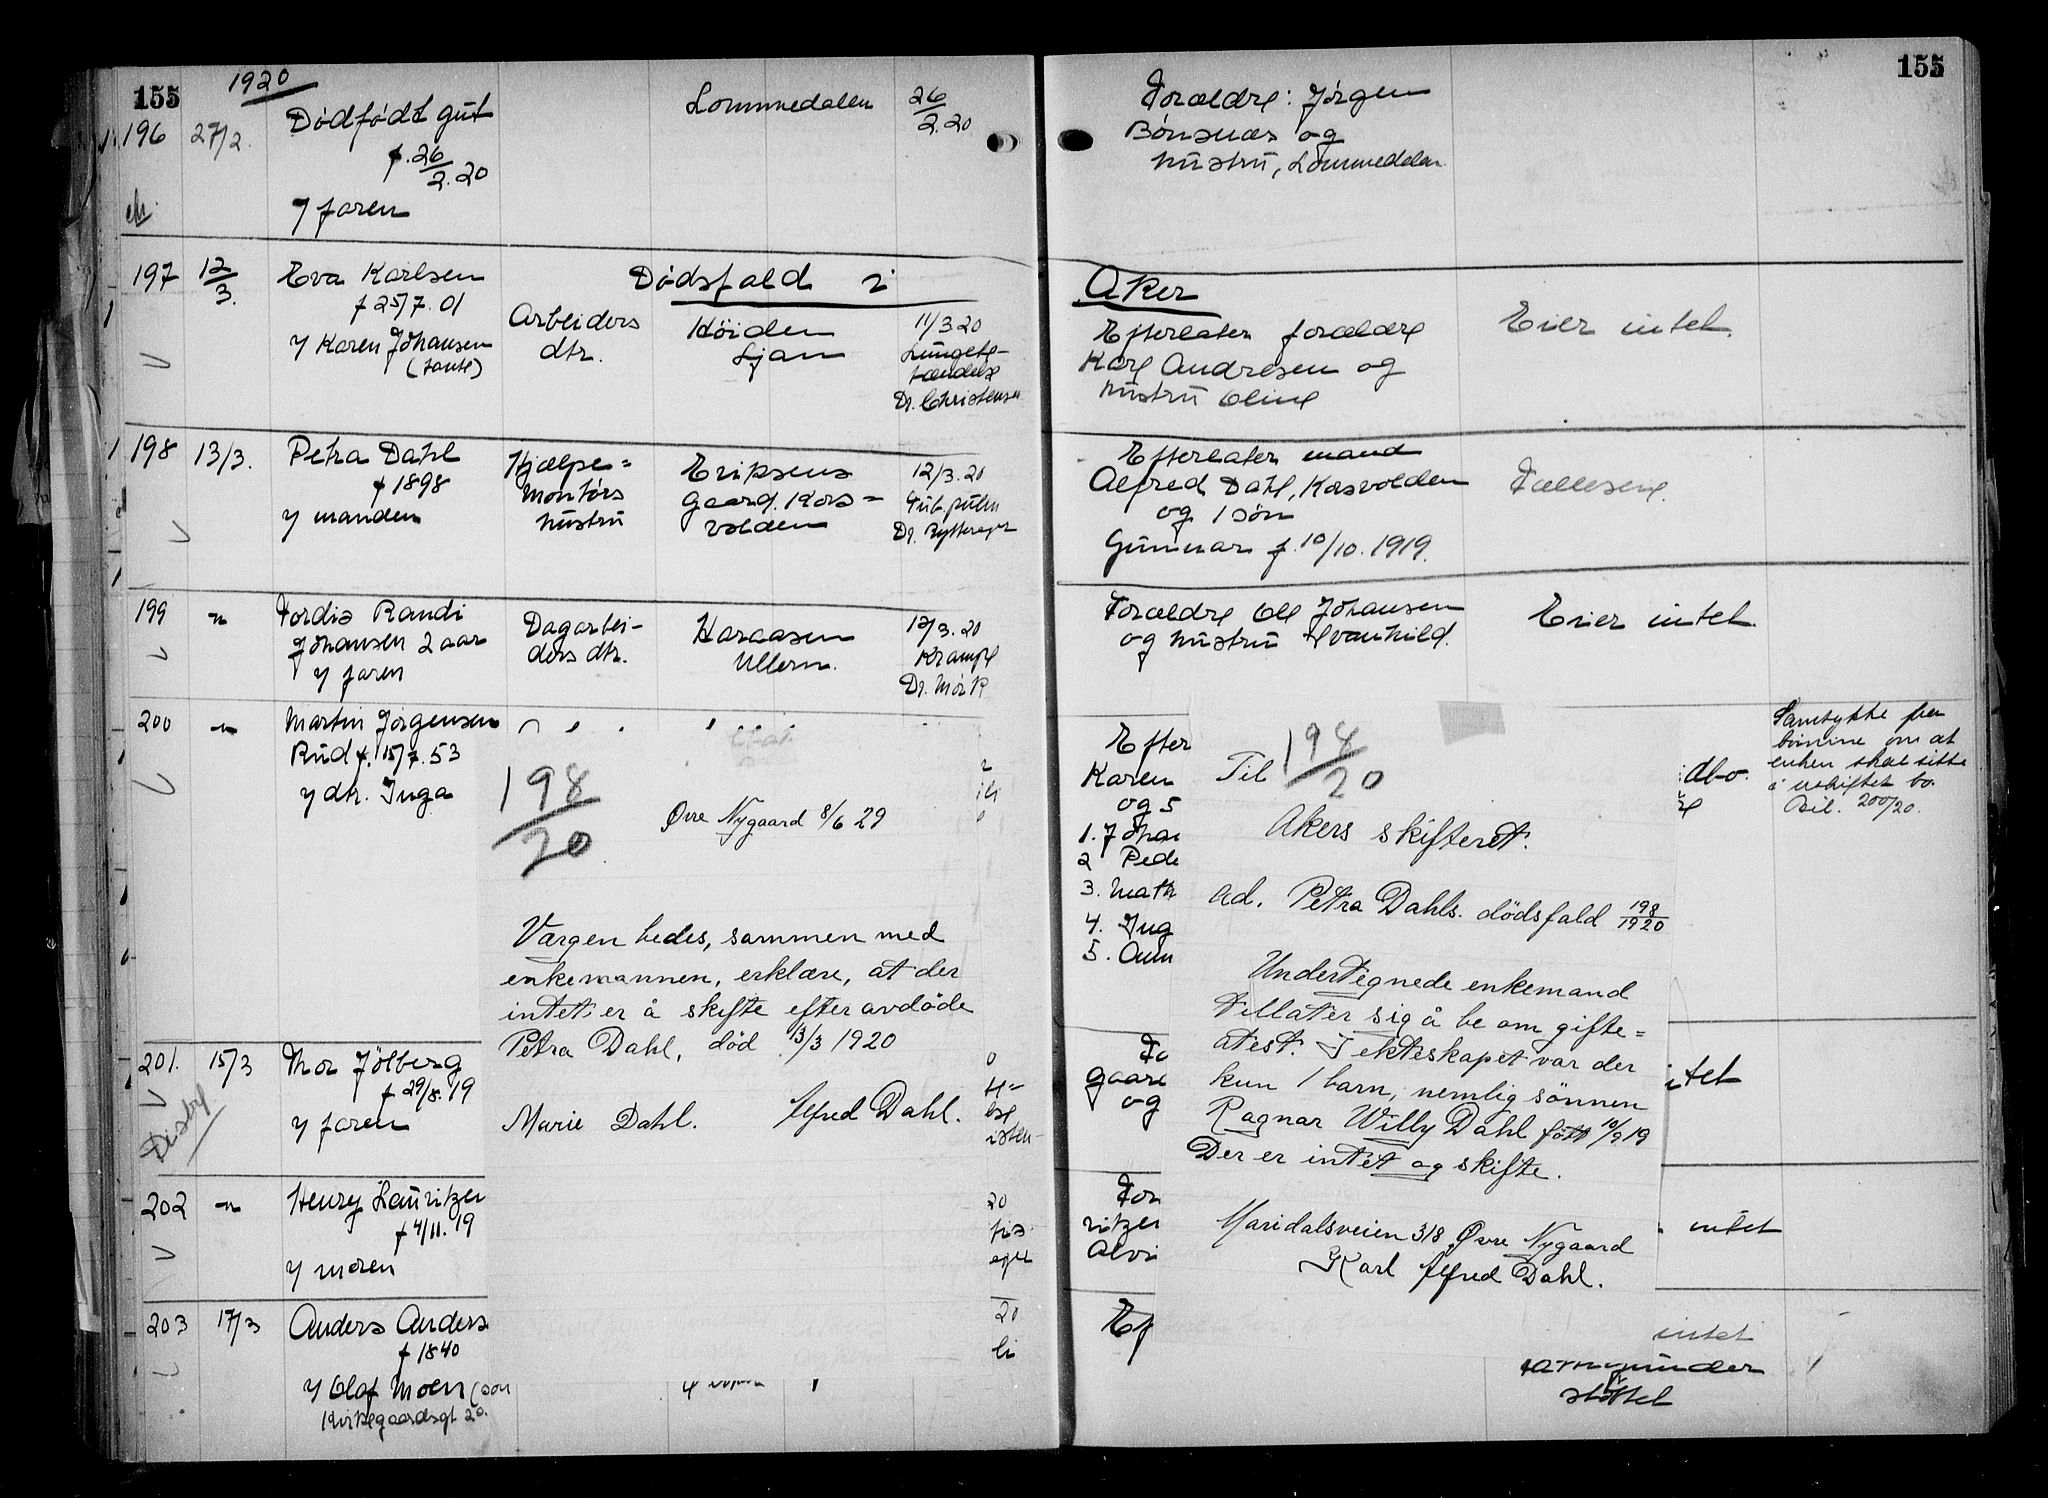 155
1920
196 27/2. Dødfødt gut Lommedalen 26/2.20
f. 26/2.20
/ faren
197 12/3. Eva Karlsen Dødsfald i
f 25/7.01
/ Karen Johansen
(tante)
Arbeiders
dtr.
Höiden
Ljan
11/3 20
Dr. Christensen
198 13/3. Petra Dahl
f 1898
/ manden
Hjælpe=
montørs
hustru
Eriksens
gaard, Kors=
volden
12/3.20
Tub. pulm
199 " Tordis Randi
Johansen 2 aar
/ faren
Dagarbei-
ders dtr.
Haraasen
Ullern.
12/3.20
Krampe
Dr. Mörk
200 " Martin Jørgensen
Rud f. 15/7.53
/ dtr. Inga
201. 15/3 Thor Jölberg
f 29/8.19
/ faren
Disby
202 " Henry Lauritzen
f 4/11.19
/ moren
20
203 17/3 Anders Anders
f 1840
/ Olaf Moen (søn
Kirkegaardsgt 20.
20
198/20
Øvre Nygaard 8/6 29
Værgen bedes, sammen med
enkemannen, erklære, at der
intet er å skifte efter avdöde
Petra Dahl, död 13/3 1920
Marie Dahl. Alfred Dahl.
155
Forældre: Jørgen
Bönsnæs og
hustru, Lommedalen
Aker
Efterlater forældre
Karl Andresen og
hustru Oline
Eier intet.
Efterlater mand
Alfred Dahl, Korsvolden
og 1 sön
Gunnar f. 10/10.1919.
Fælleseie.
Forældre Ole Johansen
og hustru Svanhild.
Eier intet.
Efter
Karen
og 5
1. Johan
2 Pede
3. Math
4. Ing
5. Ann
dbo.
Samtykke fra
barnene om at
enken skal sitte
i uskiftet bo.
Bil. 200/20.
Fo
gaard
og
intet
For
ritzen
Alvi
intet
Ef
intet
Til 198/20
Akers skifteret.
ad. Petra Dahls. dödsfald 198/1920
Undertegnede enkemand
tillater sig å be om gifte=
atest. I ekteskapet var der
kun 1 barn, nemlig sönnen
Ragnar Willy Dahl født 10/9 19
Der er intet og skifte.
Maridalsveien 318 Øvre Nygaard
Karl Alfred Dahl.